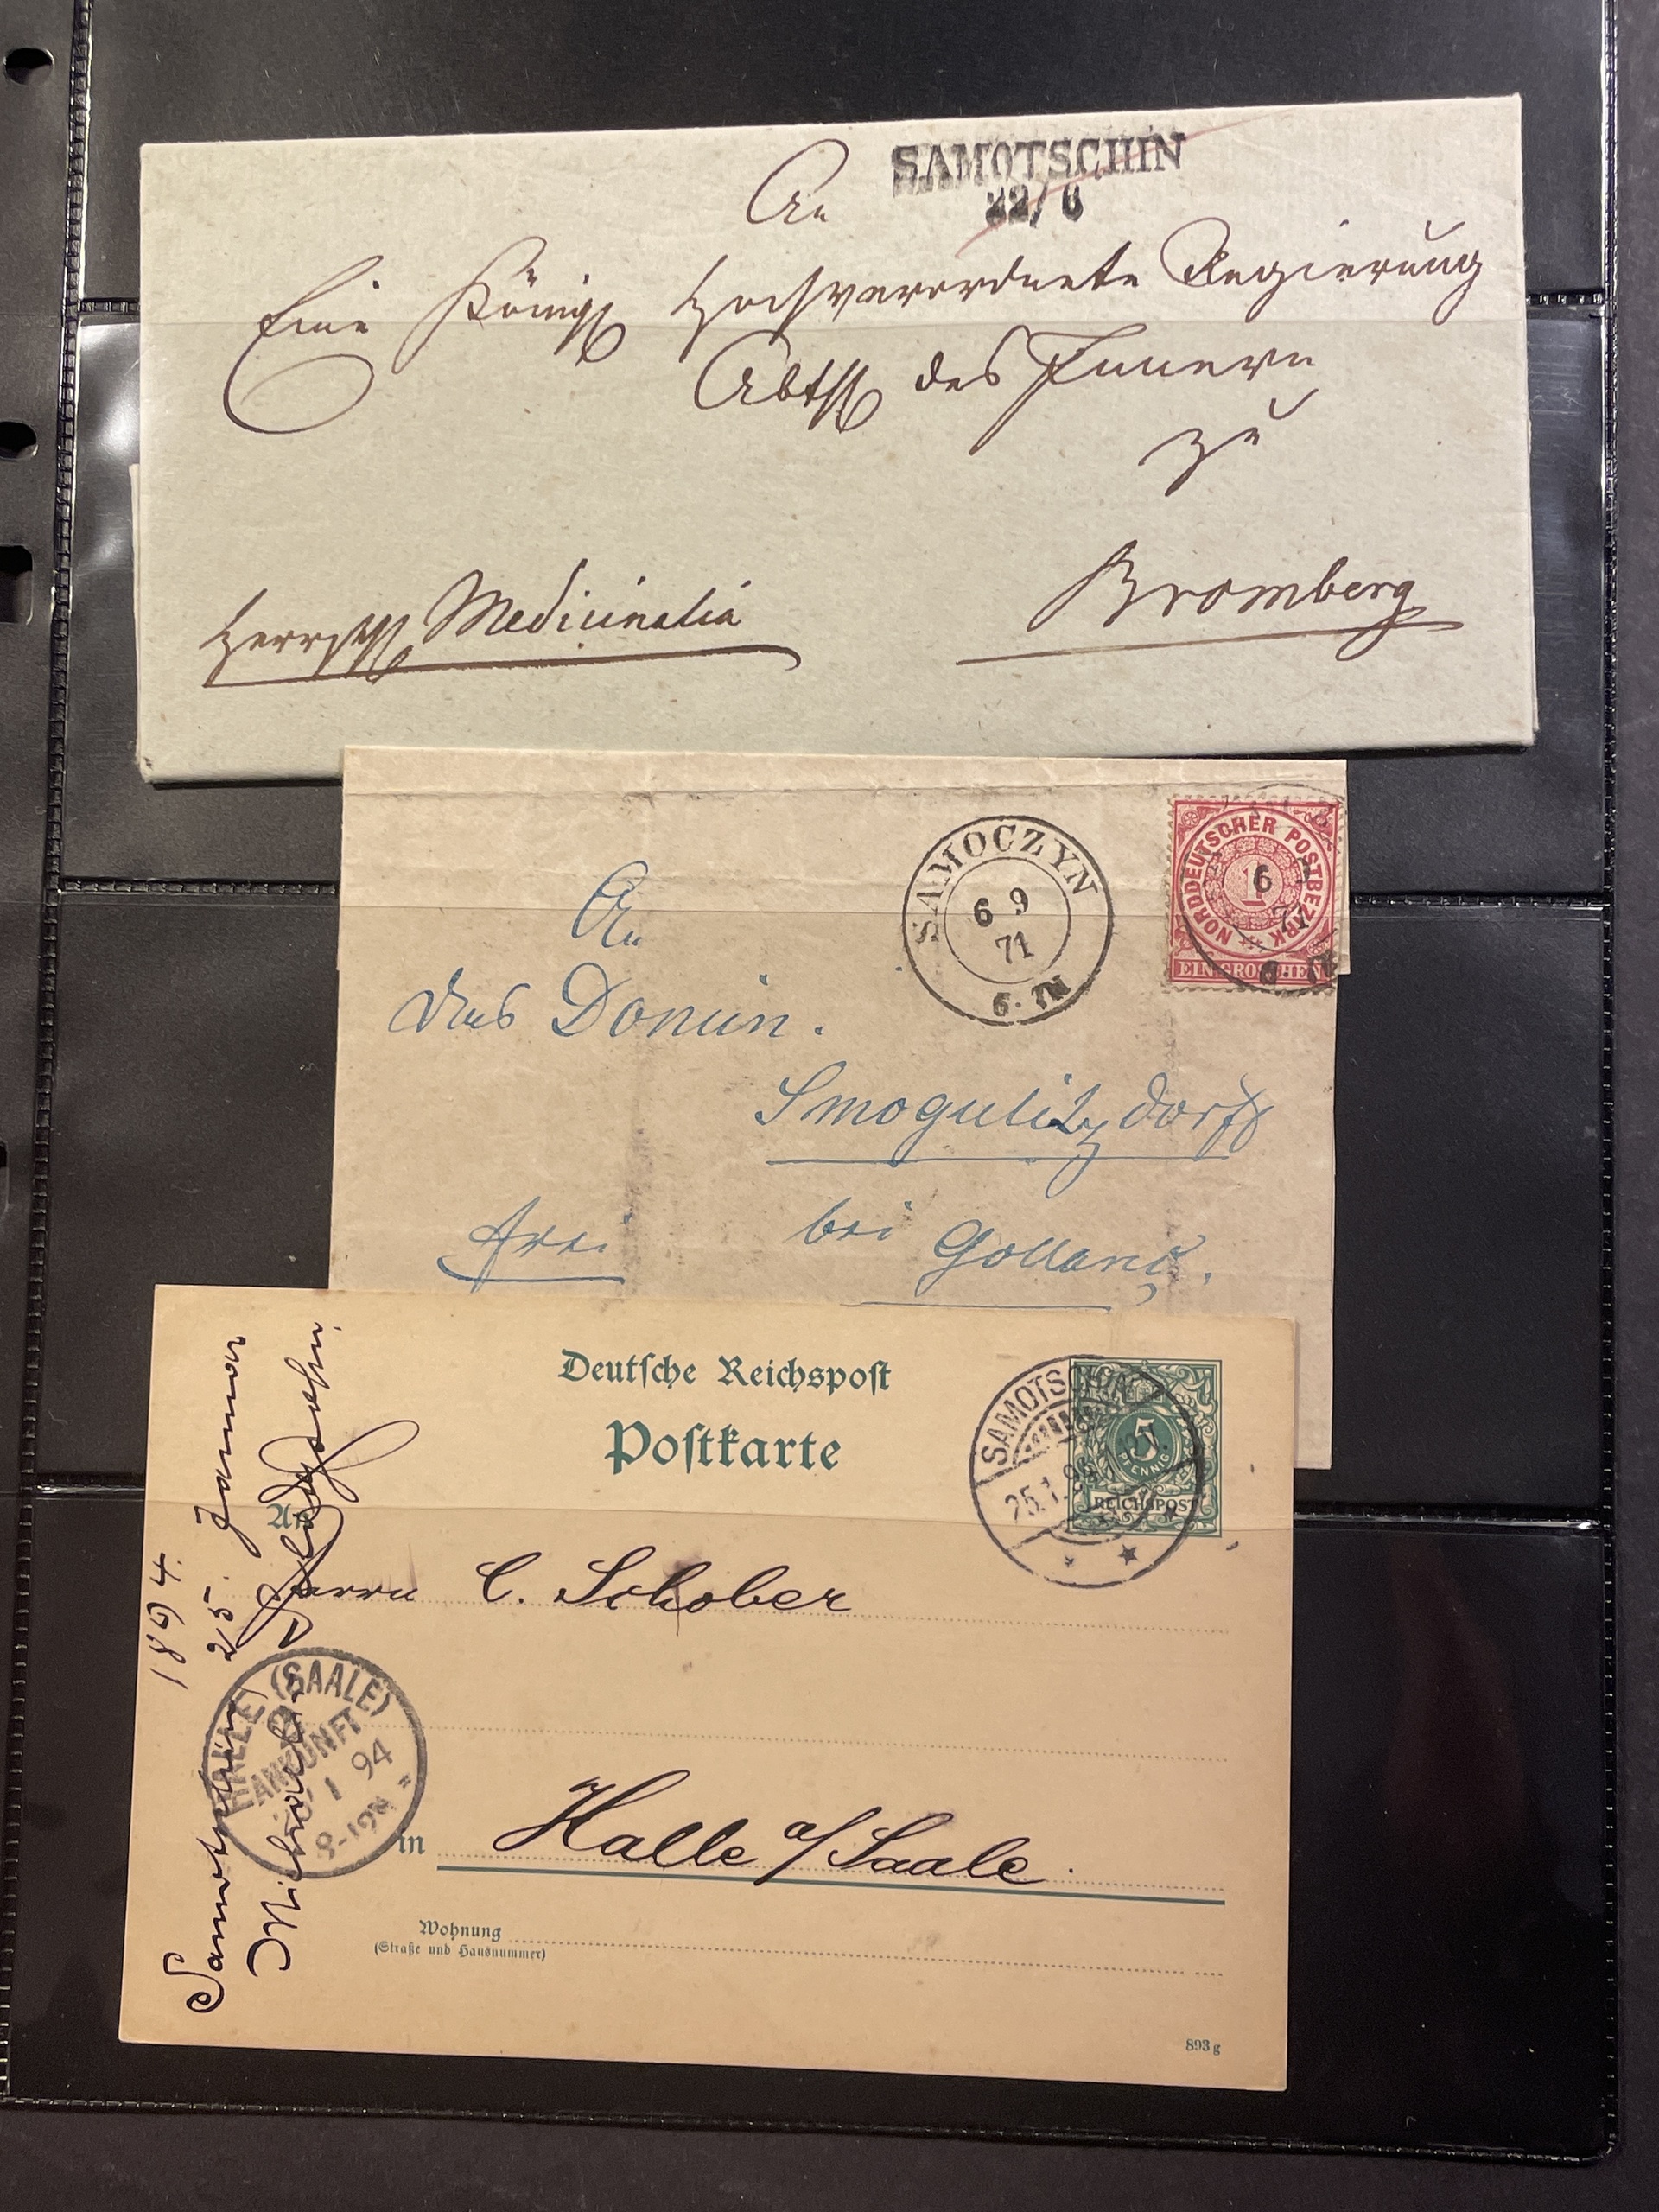 SAMOTSCHIN
22/6
An
Eine Königl Hochverordnete Regierung
Abthl des Innern
zu
Bromberg
Medicinalia
SAMOCZYN
6 9
71
6-7N
NORDDEUTSCHER POSTBEZIRK
1
EIN GROSCHEN
6
71
An
das Domin.
Smogulitzdorff
bei Gollanç.
frei
Deutsche Reichspost
Postkarte
SAMOTSCHIN
25.1.94
5
PFENNIG
REICHSPOST
An
Herrn C. Schober
in Halle a/Saale.
Wohnung
(Straße und Hausnummer)
893g
HALLE (SAALE)
ANKUNFT
1 94
8-12N
Samotschin 25. Januar
1894.